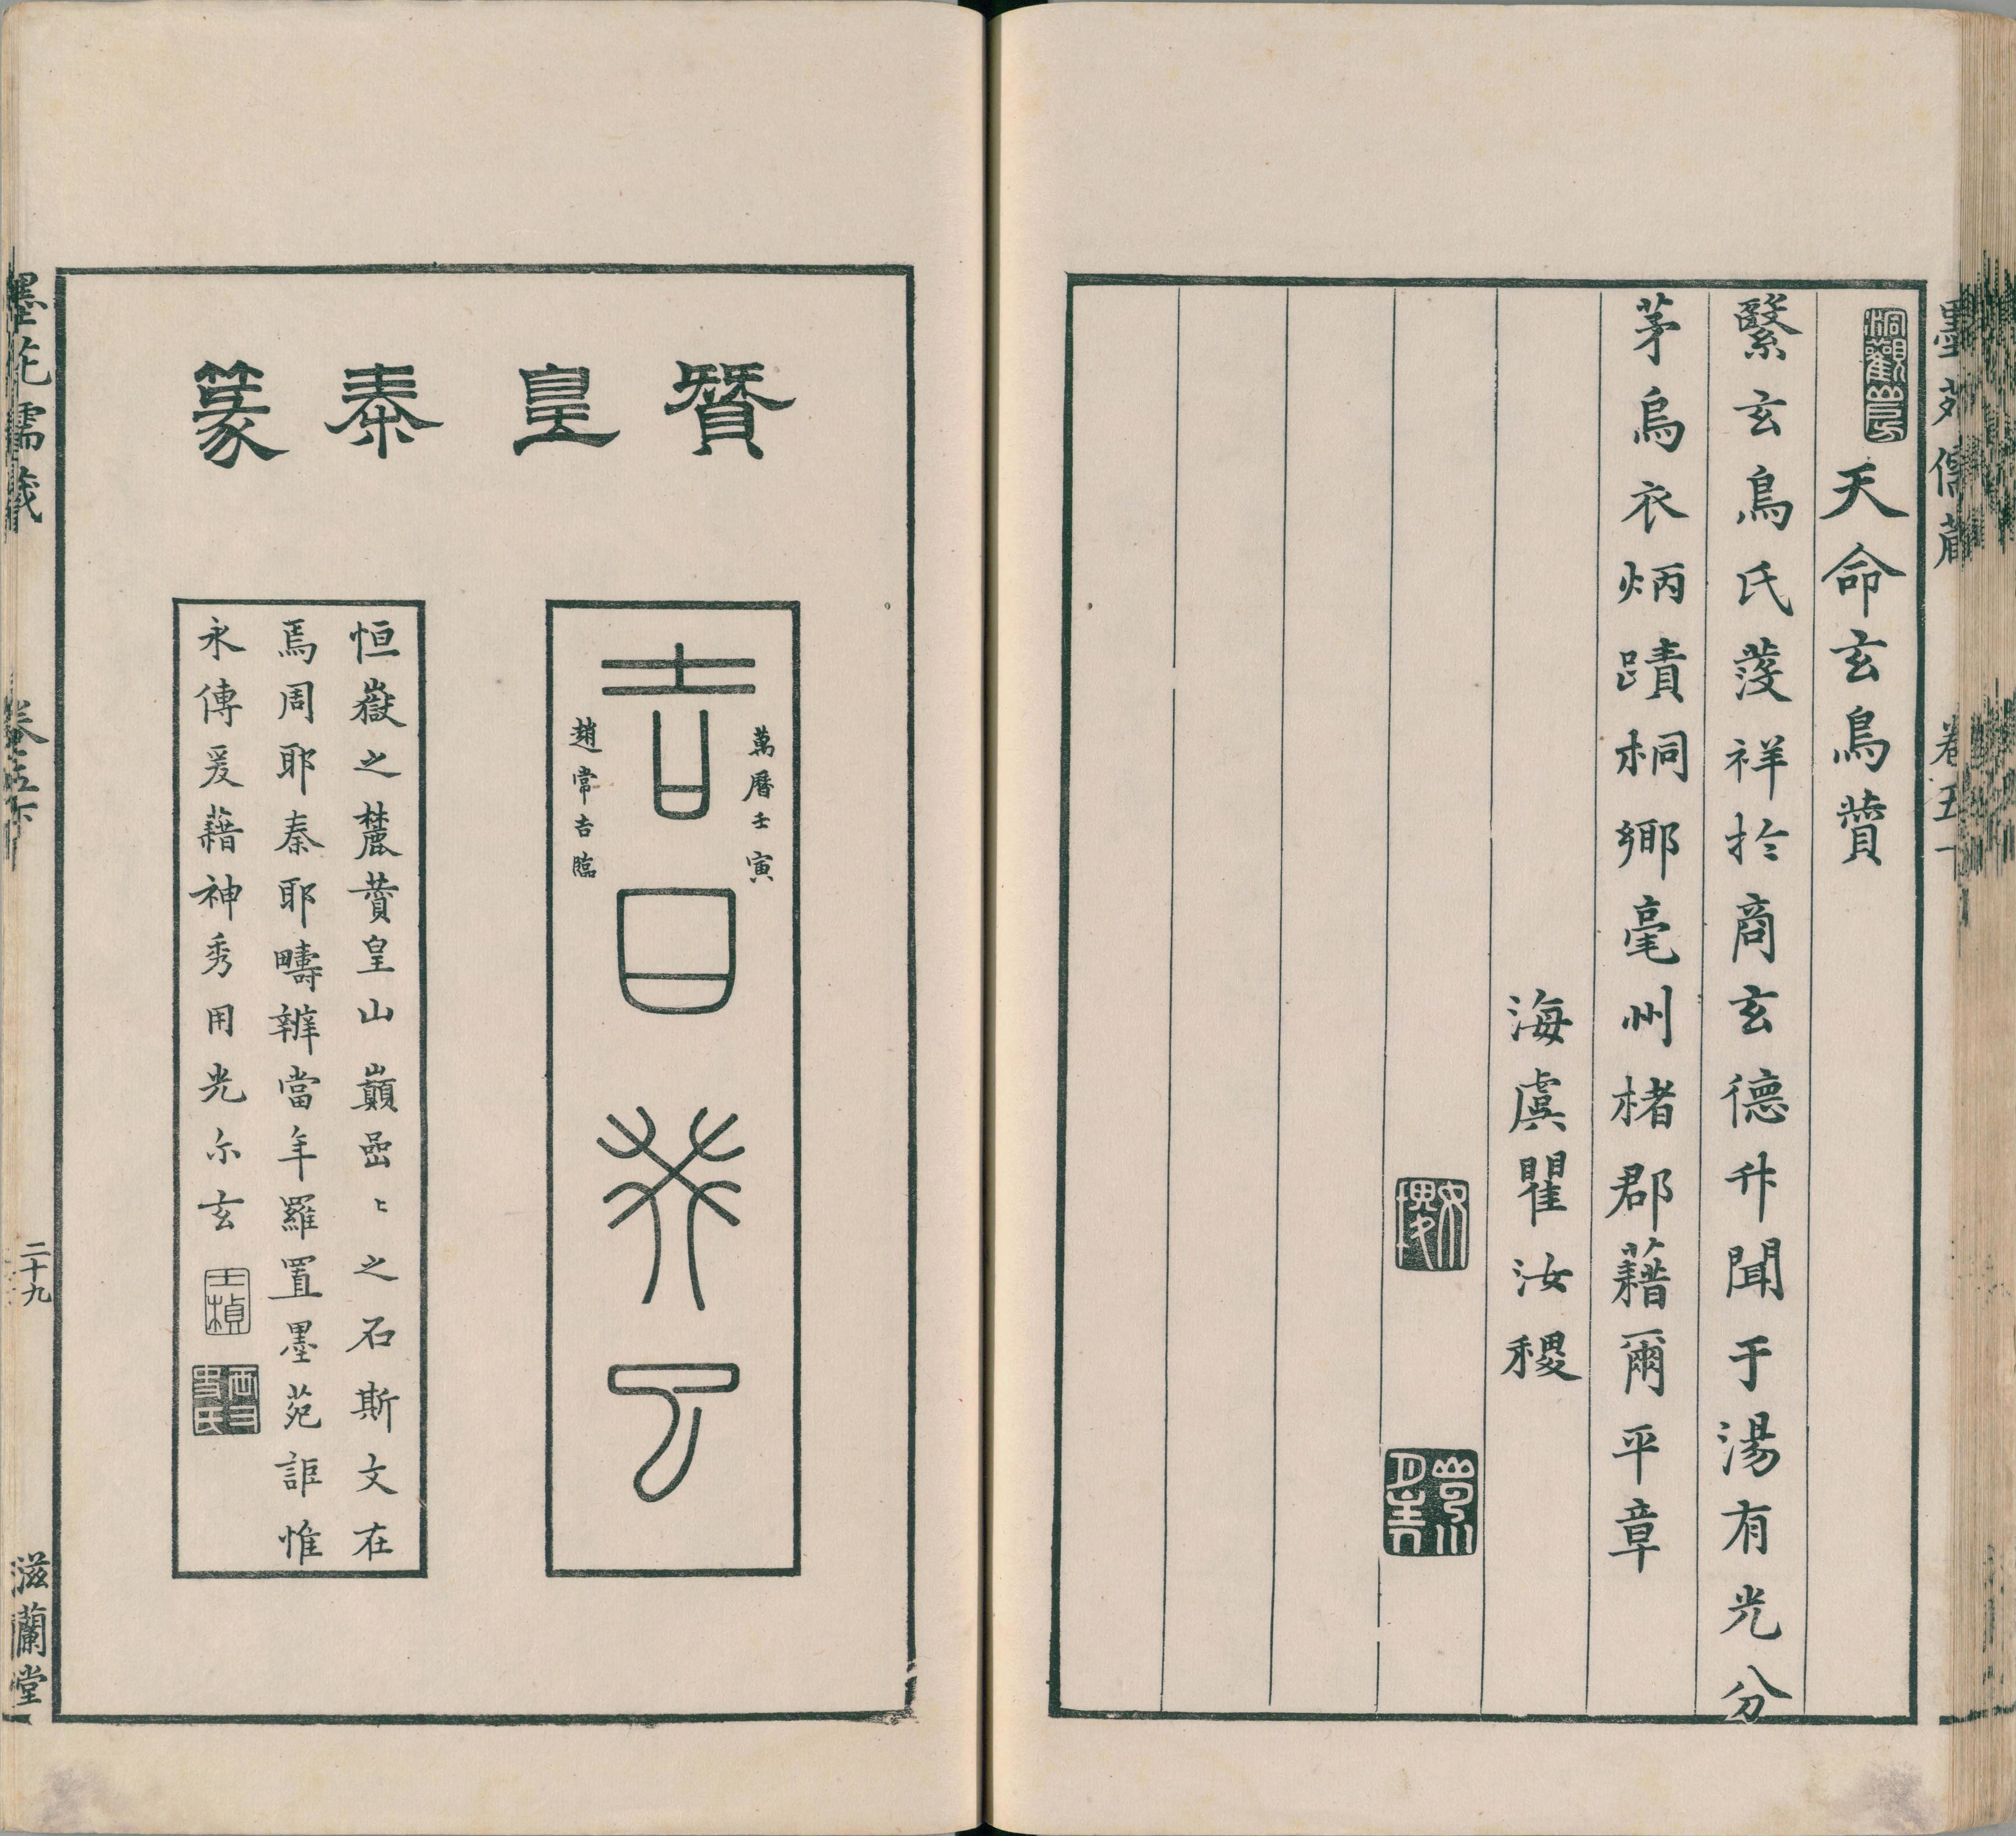 墨苑儒藏 卷五
天命玄鳥贊
繄玄鳥氏發祥扵商玄德升聞于湯有光分
茅烏衣炳蹟桐鄉毫州楮郡藉爾平章
海虞瞿汝稷
贊皇秦篆
萬曆壬寅
吉日癸巳
趙常吉臨
恒嶽之麓贊皇山巔嵒〻之石斯文在
焉周耶秦耶疇辨當年羅置墨苑詎惟
永傳爰藉神秀用光尔玄
王楨
墨苑儒藏 卷五下 二十九 滋蘭堂